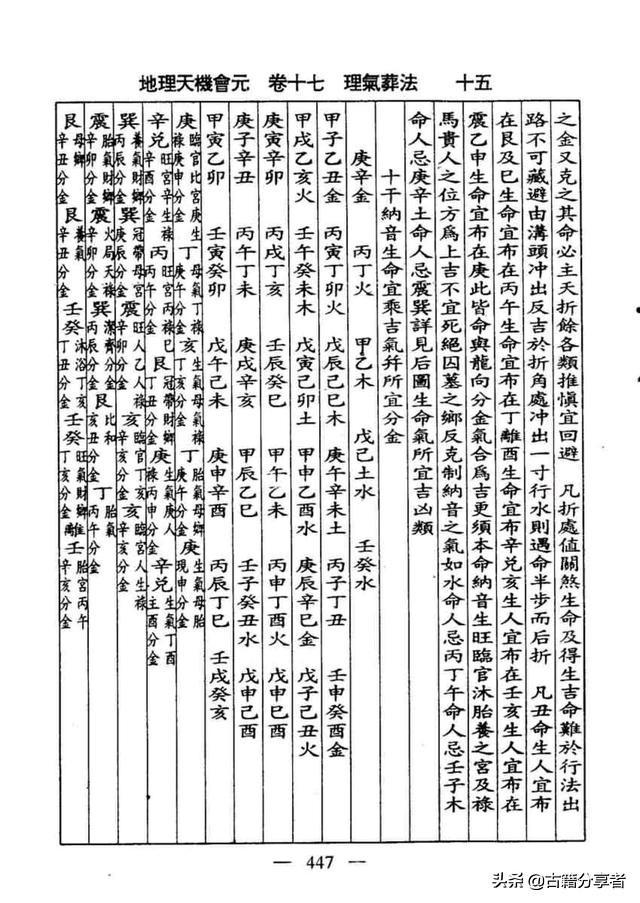 地理天機會元　卷十七　理氣葬法　十五
之金又克之其命必主夭折餘各類推慎宜回避　凡折處值關煞生命及得生吉命難於行法出
路不可藏避由溝頭冲出反吉於折角處冲出一寸行水則遇命半步而后折　凡丑命生人宜布
在艮及巳生命宜布在丙午生命宜布在丁離酉生命宜布辛兑亥生人宜布在壬亥生人宜布在
震乙申生命宜布在庚此皆命與龍向分金氣合爲吉更須本命納音生旺臨官沐胎養之宮及祿
馬貴人之位方爲上吉不宜死絕囚墓之鄉反克制納音之氣如水命人忌丙丁午命人忌壬子木
命人忌庚辛土命人忌震巽詳見后圖生命氣所宜吉凶類
十干納音生命宜乘吉氣幷所宜分金
庚辛金　丙丁火　甲乙木　戊己土水　壬癸水
甲子乙丑金　丙寅丁卯火　戊辰己巳木　庚午辛未土　丙子丁丑　壬申癸酉金
甲戌乙亥火　壬午癸未木　戊寅己卯土　甲申乙酉水　庚辰辛巳金　戊子己丑火
庚寅辛卯　丙戌丁亥　壬辰癸巳　甲午乙未　丙申丁酉火　戊申巳酉
庚子辛丑　丙午丁未　庚戌辛亥　甲辰乙巳　壬子癸丑水　戊申己酉
甲寅乙卯　壬寅癸卯　戊午己未　庚申辛酉　丙辰丁巳　壬戌癸亥
庚　臨官比宮庚生祿庚申分金　丁　母氣丁祿庚午分金　亥　生氣母鄉祿丁亥分金　丁　胎氣母鄉庚午分金　庚　生氣母胎現申分金
辛兑　旺宮辛生祿辛酉分金　丙　旺宮丙祿巳丙午分金　艮　冠帶財鄉丁丑分金　庚　生氣庚人祿丙申分金　辛兑　生氣丁酉主酉分金
巽　養氣財鄉丙辰分金　巽　冠帶母宮庚辰分金　震　旺人乙人祿辛卯分金　亥　臨官丁亥祿辛亥分金　亥　臨宮人生祿辛亥分金
震　胎氣財鄉辛卯分金　震　火局天祿辛卯分金　巽　潔齊分金丙辰分金　艮　比和亥丑分金　丁　胎氣丙午分金
艮　母鄉辛丑分金　艮　養氣辛丑分金　壬癸　沐浴丁亥丁丑分金　壬癸　旺氣財鄉丁亥分金　離壬　胎宮丙午辛亥分金
— 447 —
头条 @古籍分享者